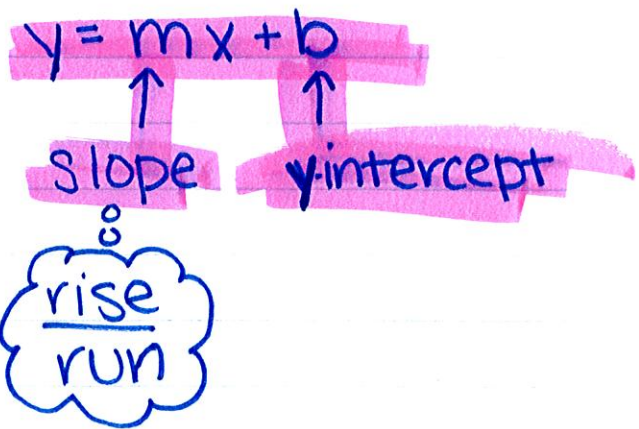 y = mx + b
slope y-intercept
rise
run